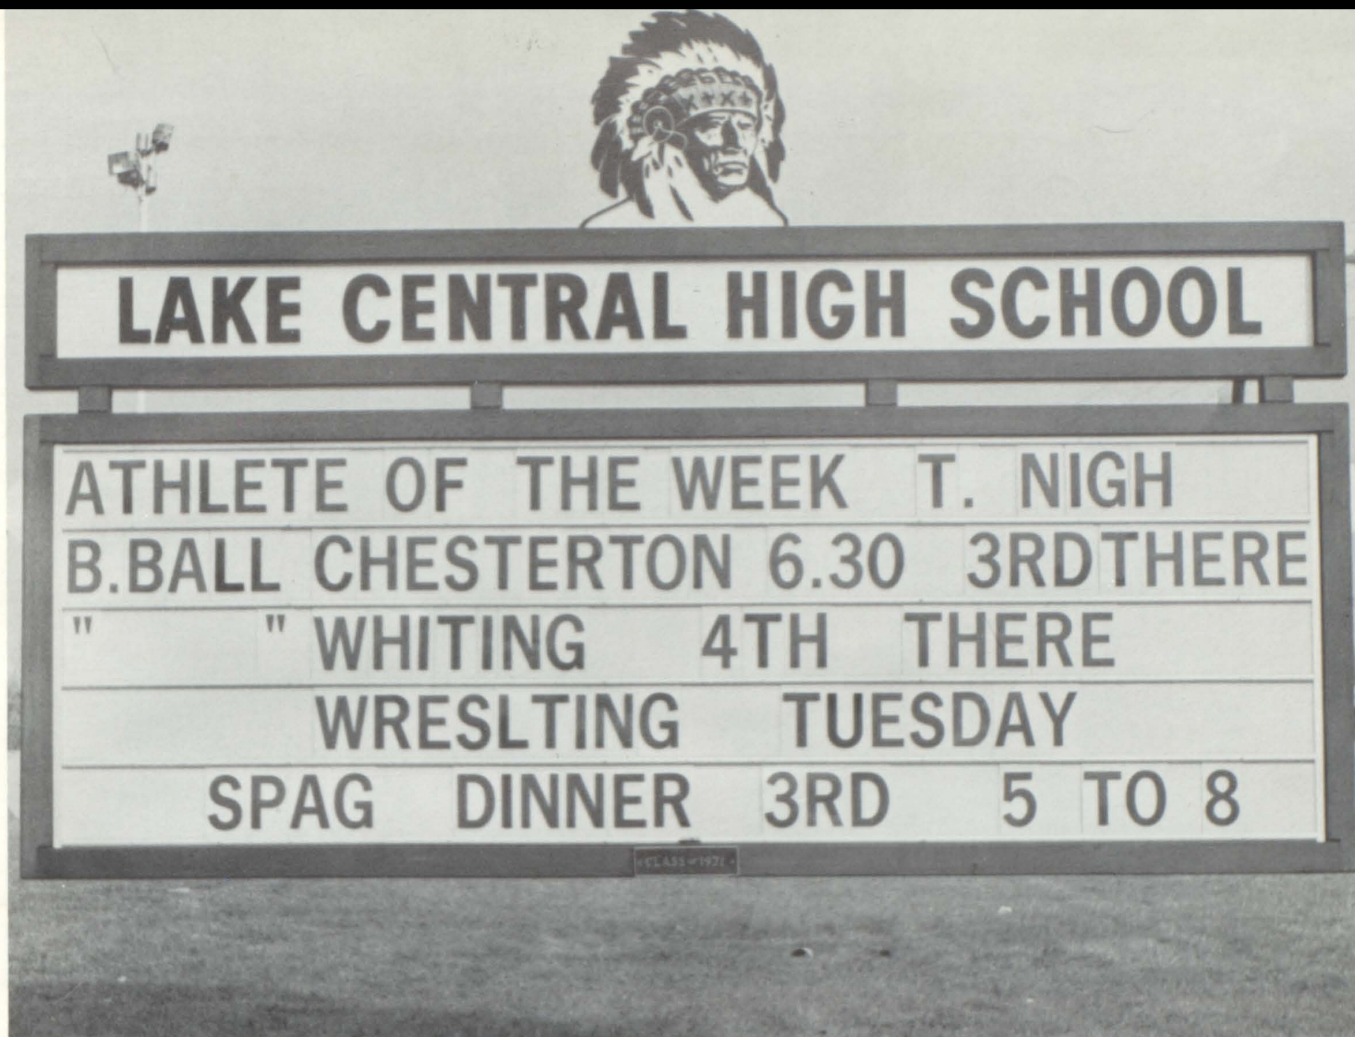 LAKE CENTRAL HIGH SCHOOL
ATHLETE OF THE WEEK T. NIGH
B.BALL CHESTERTON 6.30 3RDTHERE
" " WHITING 4TH THERE
WRESLTING TUESDAY
SPAG DINNER 3RD 5 TO 8
CLASS OF 1971